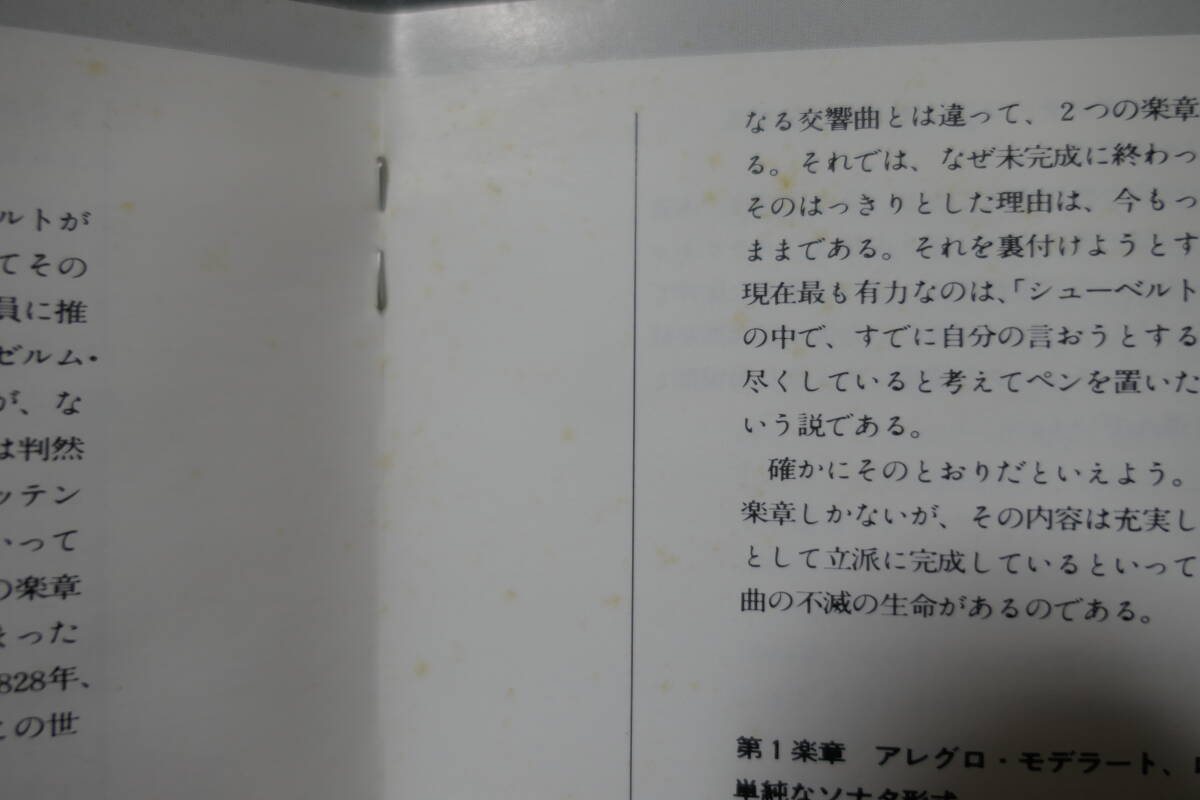 ルトが
てその
員に推
ゼルム・
が、な
は判然
ッテン
いって
の楽章
まった
828年、
の世
なる交響曲とは違って、2つの楽章
る。それでは、なぜ未完成に終わっ
そのはっきりとした理由は、今もっ
ままである。それを裏付けようとす
現在最も有力なのは、「シューベルト
の中で、すでに自分の言おうとする
尽くしていると考えてペンを置いた
いう説である。
確かにそのとおりだといえよう。
楽章しかないが、その内容は充実し
として立派に完成しているといって
曲の不滅の生命があるのである。
第1楽章 アレグロ・モデラート、
単純なソナタ形式